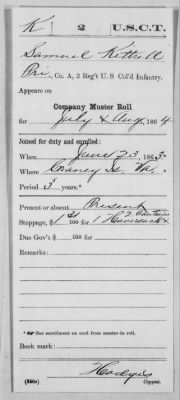 K 2 U.S.C.T.
Samuel Kittrell
Pri, Co. A, 2 Reg't U. S. Col'd Infantry.
Appears on
Company Muster Roll
for July & Aug, 1864
Joined for duty and enrolled:
When June 23, 1863.
Where Craney Is Va.
Period 3 years.*
Present or absent Present
Stoppage, $ 1 /100 for 1 Haversack &
Due Gov't $ /100 for
Remarks:
* See enrollment on card from muster-in roll.
Book mark:
(350c) Copyist.